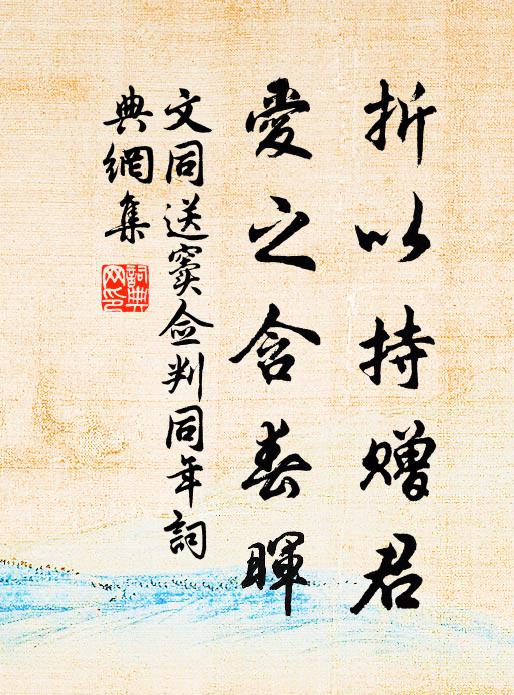 折以持赠君
愛之含春暉
文同送窦佥判同年詞
典網集
詞典网印